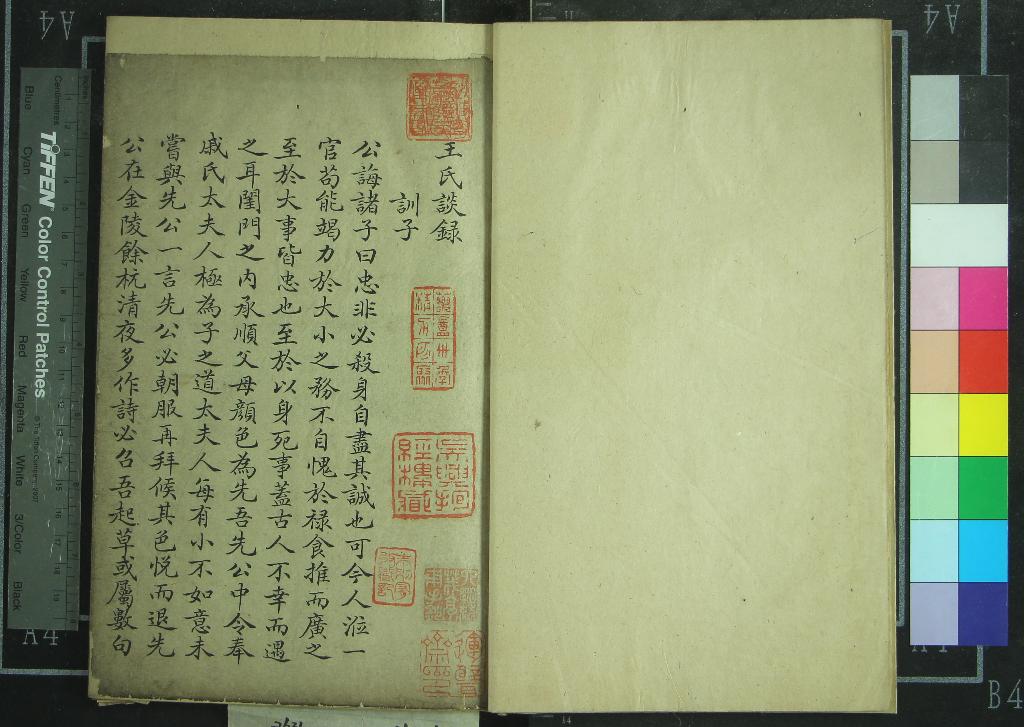 王氏談録
訓子
公誨諸子曰忠非必殺身自盡其誠也可今人涖一
官苟能竭力於大小之務不自愧於禄食推而廣之
至於大事皆忠也至於以身死事蓋古人不幸而遇
之耳閨門之内承順父母顔色為先吾先公中令奉
戚氏太夫人極為子之道太夫人每有小不如意未
嘗與先公一言先公必朝服再拜候其色悦而退先
公在金陵餘杭清夜多作詩必召吾起草或屬數句
TIFFEN Color Control Patches
© The Tiffen Company, 2007
Centimetres
Blue
Cyan
Green
Yellow
Red
Magenta
White
3/Color
Black
A4
A4
A4
A4
B4
14